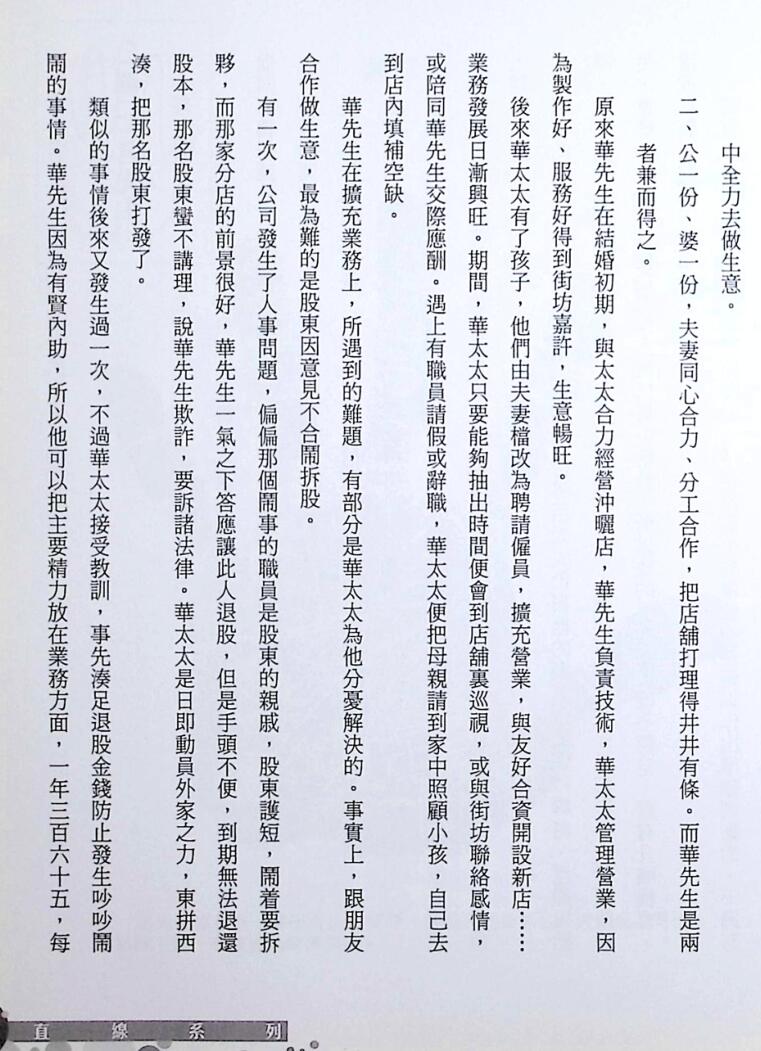 中全力去做生意。
二、公一份、婆一份，夫妻同心合力、分工合作，把店舖打理得井井有條。而華先生是兩
者兼而得之。
原來華先生在結婚初期，與太太合力經營沖曬店，華先生負責技術，華太太管理營業，因
為製作好、服務好得到街坊嘉許，生意暢旺。
後來華太太有了孩子，他們由夫妻檔改為聘請僱員，擴充營業，與友好合資開設新店……
業務發展日漸興旺。期間，華太太只要能夠抽出時間便會到店舖裏巡視，或與街坊聯絡感情，
或陪同華先生交際應酬。遇上有職員請假或辭職，華太太便把母親請到家中照顧小孩，自己去
到店內填補空缺。
華先生在擴充業務上，所遇到的難題，有部分是華太太為他分憂解決的。事實上，跟朋友
合作做生意，最為難的是股東因意見不合鬧拆股。
有一次，公司發生了人事問題，偏偏那個鬧事的職員是股東的親戚，股東護短，鬧着要拆
夥，而那家分店的前景很好，華先生一氣之下答應讓此人退股，但是手頭不便，到期無法退還
股本，那名股東蠻不講理，說華先生欺詐，要訴諸法律。華太太是日即動員外家之力，東拼西
湊，把那名股東打發了。
類似的事情後來又發生過一次，不過華太太接受教訓，事先湊足退股金錢防止發生吵吵鬧
鬧的事情。華先生因為有賢內助，所以他可以把主要精力放在業務方面，一年三百六十五，每
直線系列